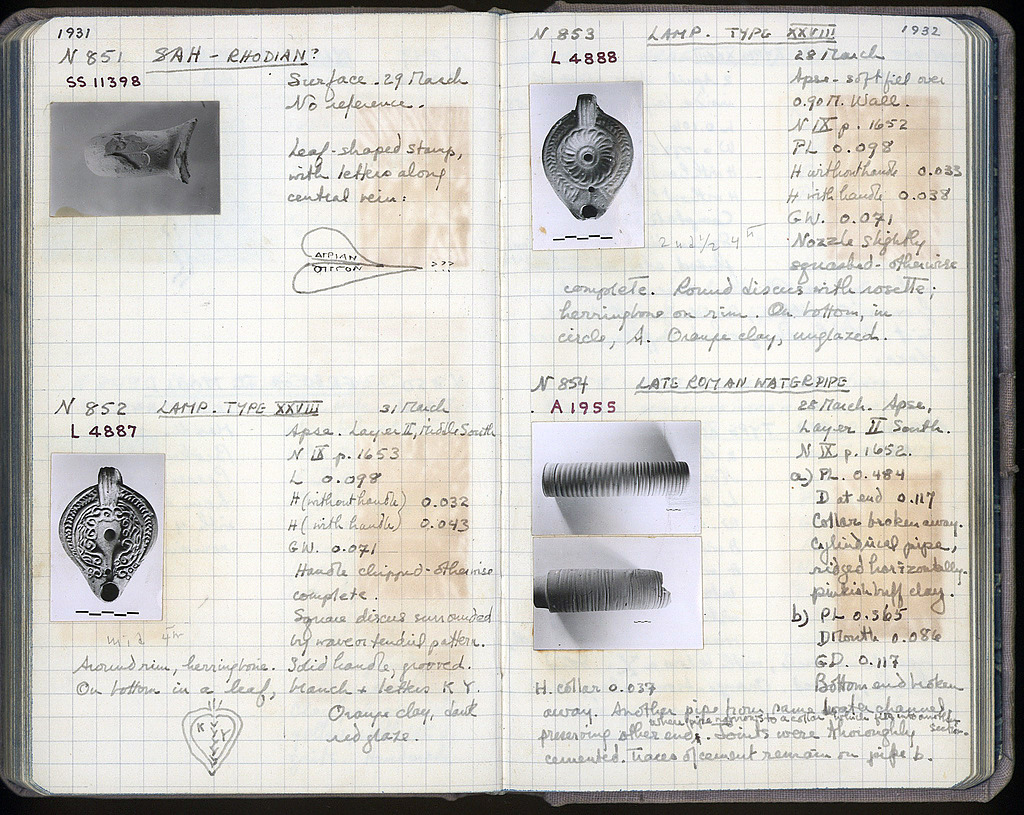 1931
N 851 SAH - RHODIAN?
SS 11398
Surface. 29 March
No reference.
Leaf-shaped stamp,
with letters along
central vein:
N 852 LAMP. TYPE XXVIII 31 March
L 4887
Apse. Layer II, Middle South
N IX p. 1653
L 0.098
H (without handle) 0.032
H (with handle) 0.043
GW. 0.071
Handle chipped - otherwise
complete.
Square discus surrounded
by wave or tendril pattern.
mid 4th
Around rim, herringbone. Solid handle, grooved.
On bottom in a leaf, branch + letters K Y.
Orange clay, dark
red glaze.
K Y
1932
N 853 LAMP. TYPE XXVIII
L 4888
28 March
Apse - soft fill over
0.90 M. Wall.
N IX p. 1652
PL 0.098
H without handle 0.033
H with handle 0.038
GW. 0.071
2nd 1/2 4th
Nozzle slightly
squashed - otherwise
complete. Round discus with rosette;
herringbone on rim. On bottom, in
circle, A. Orange clay, unglazed.
N 854 LATE ROMAN WATERPIPE
A 1955
28 March. Apse,
Layer II South.
N IX p. 1652.
a) PL. 0.484
D at end 0.117
Collar broken away.
Cylindrical pipe,
ridged horizontally.
pinkish buff clay.
b) PL 0.365
D Mouth 0.086
GD. 0.117
H. collar 0.037
Bottom end broken
away. Another pipe from same water channel,
preserving other end, where pipe narrows to a collar which fits into another section.
Joints were thoroughly
cemented. Traces of cement remain on pipe b.